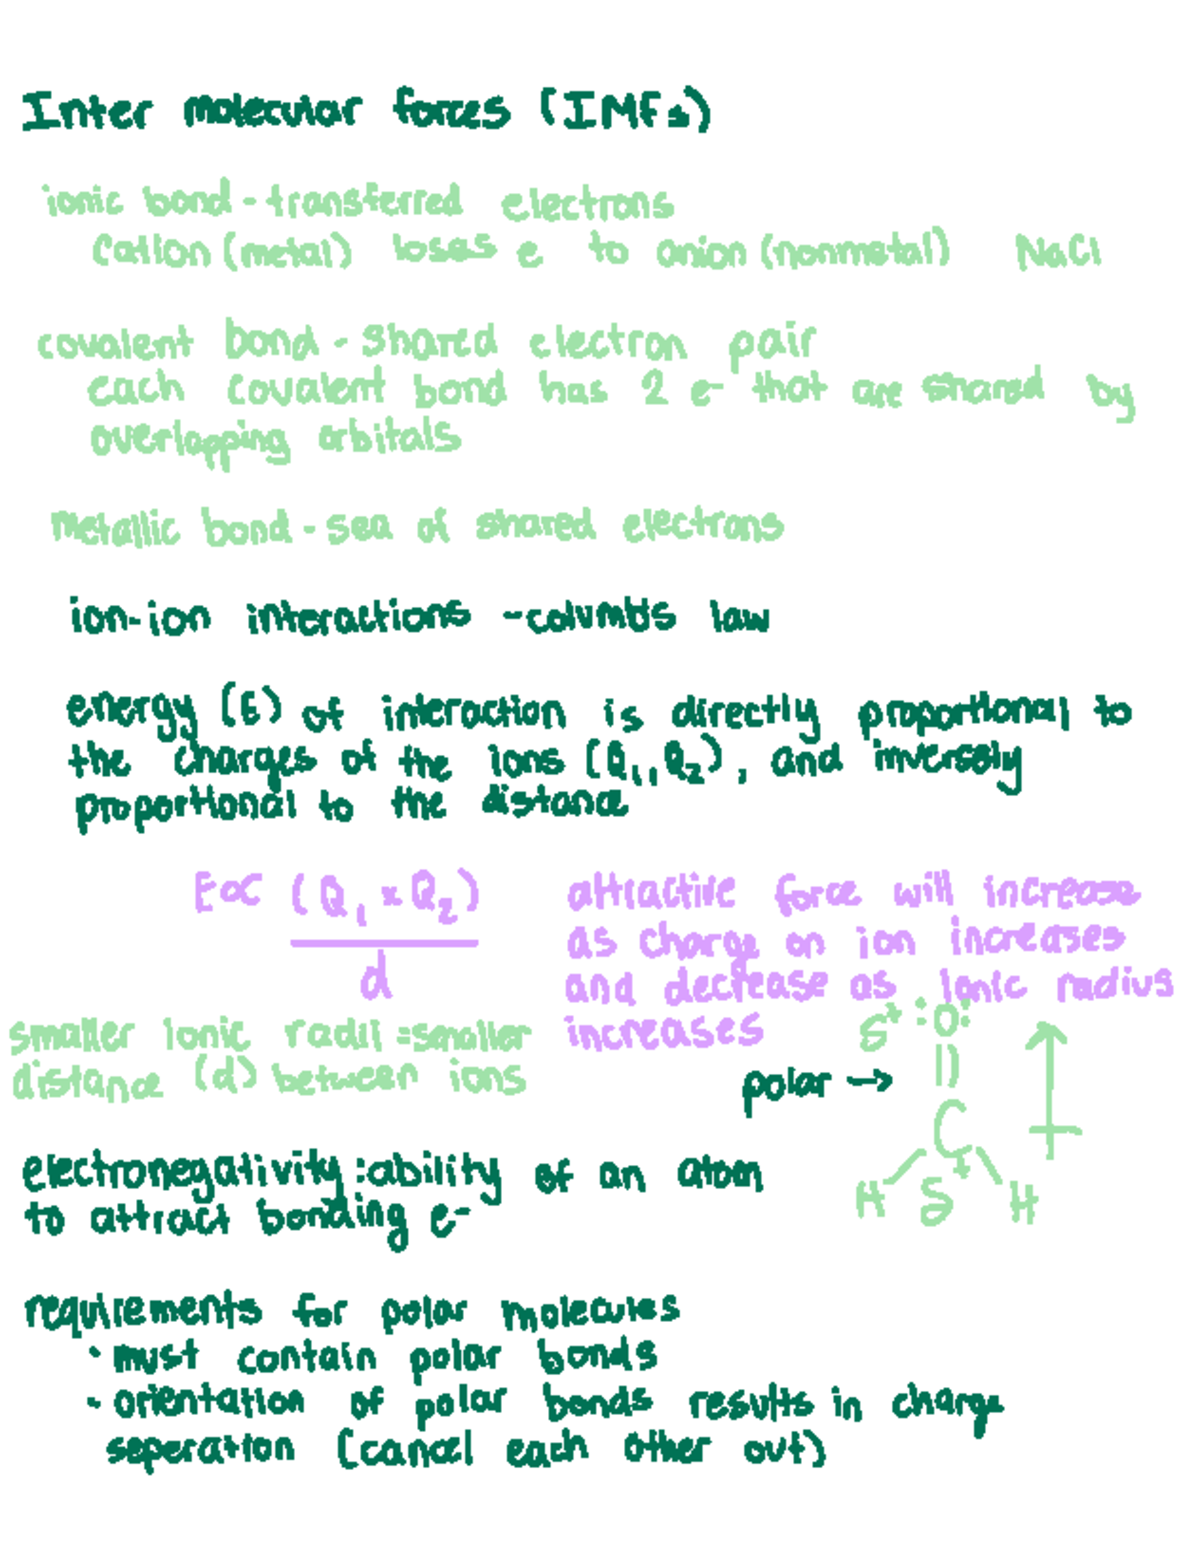 Inter molecular forces (IMFs)
ionic bond - transferred electrons
Cation (metal) loses e to anion (nonmetal) NaCl
covalent bond - shared electron pair
each covalent bond has 2 e- that are shared by
overlapping orbitals
metallic bond - sea of shared electrons
ion-ion interactions - columb's law
energy (E) of interaction is directly proportional to
the charges of the ions (Q₁, Q₂), and inversely
proportional to the distance
E∝ (Q₁ x Q₂)
d
attractive force will increase
as charge on ion increases
and decrease as ionic radius
increases
smaller ionic radii = smaller
distance (d) between ions
δ+ :O:
polar →
C
H δ+ H
electronegativity: ability of an atom
to attract bonding e-
requirements for polar molecules
• must contain polar bonds
• orientation of polar bonds results in charge
seperation (cancel each other out)